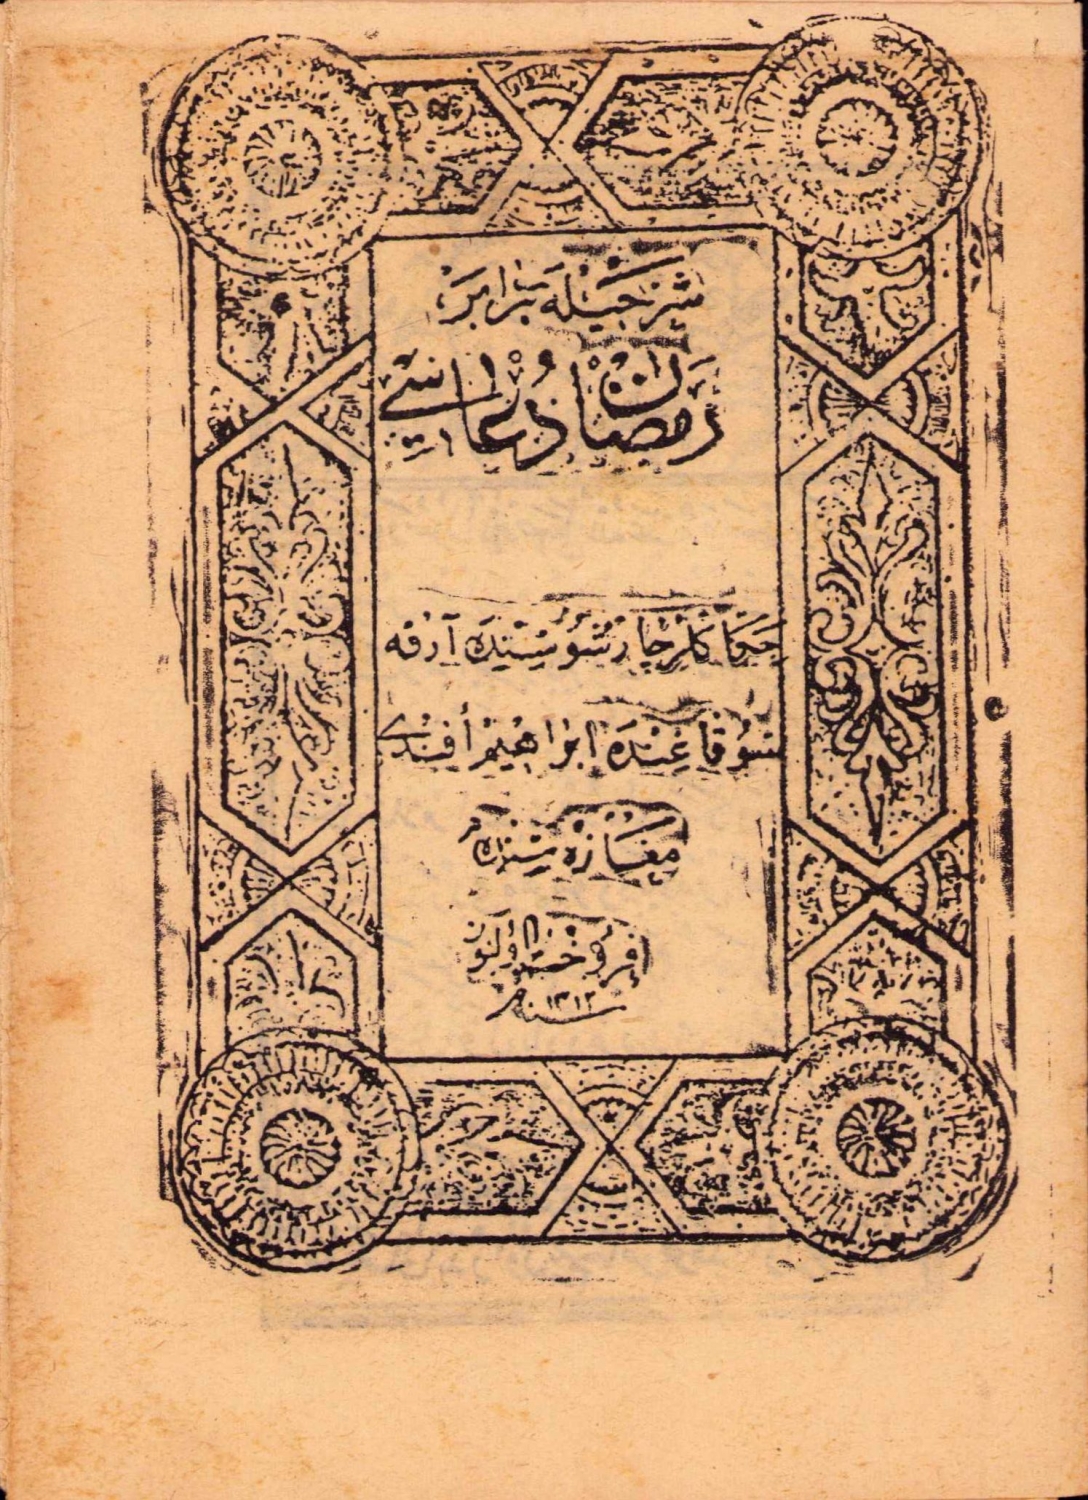 شرحیله برابر
رمضان دعاسی
حكاكلر چارشوسنده آرقه
سوقاغنده ابراهیم أفندی
مغازه سنده
فروخت اولنور
سنه ١٣١٢